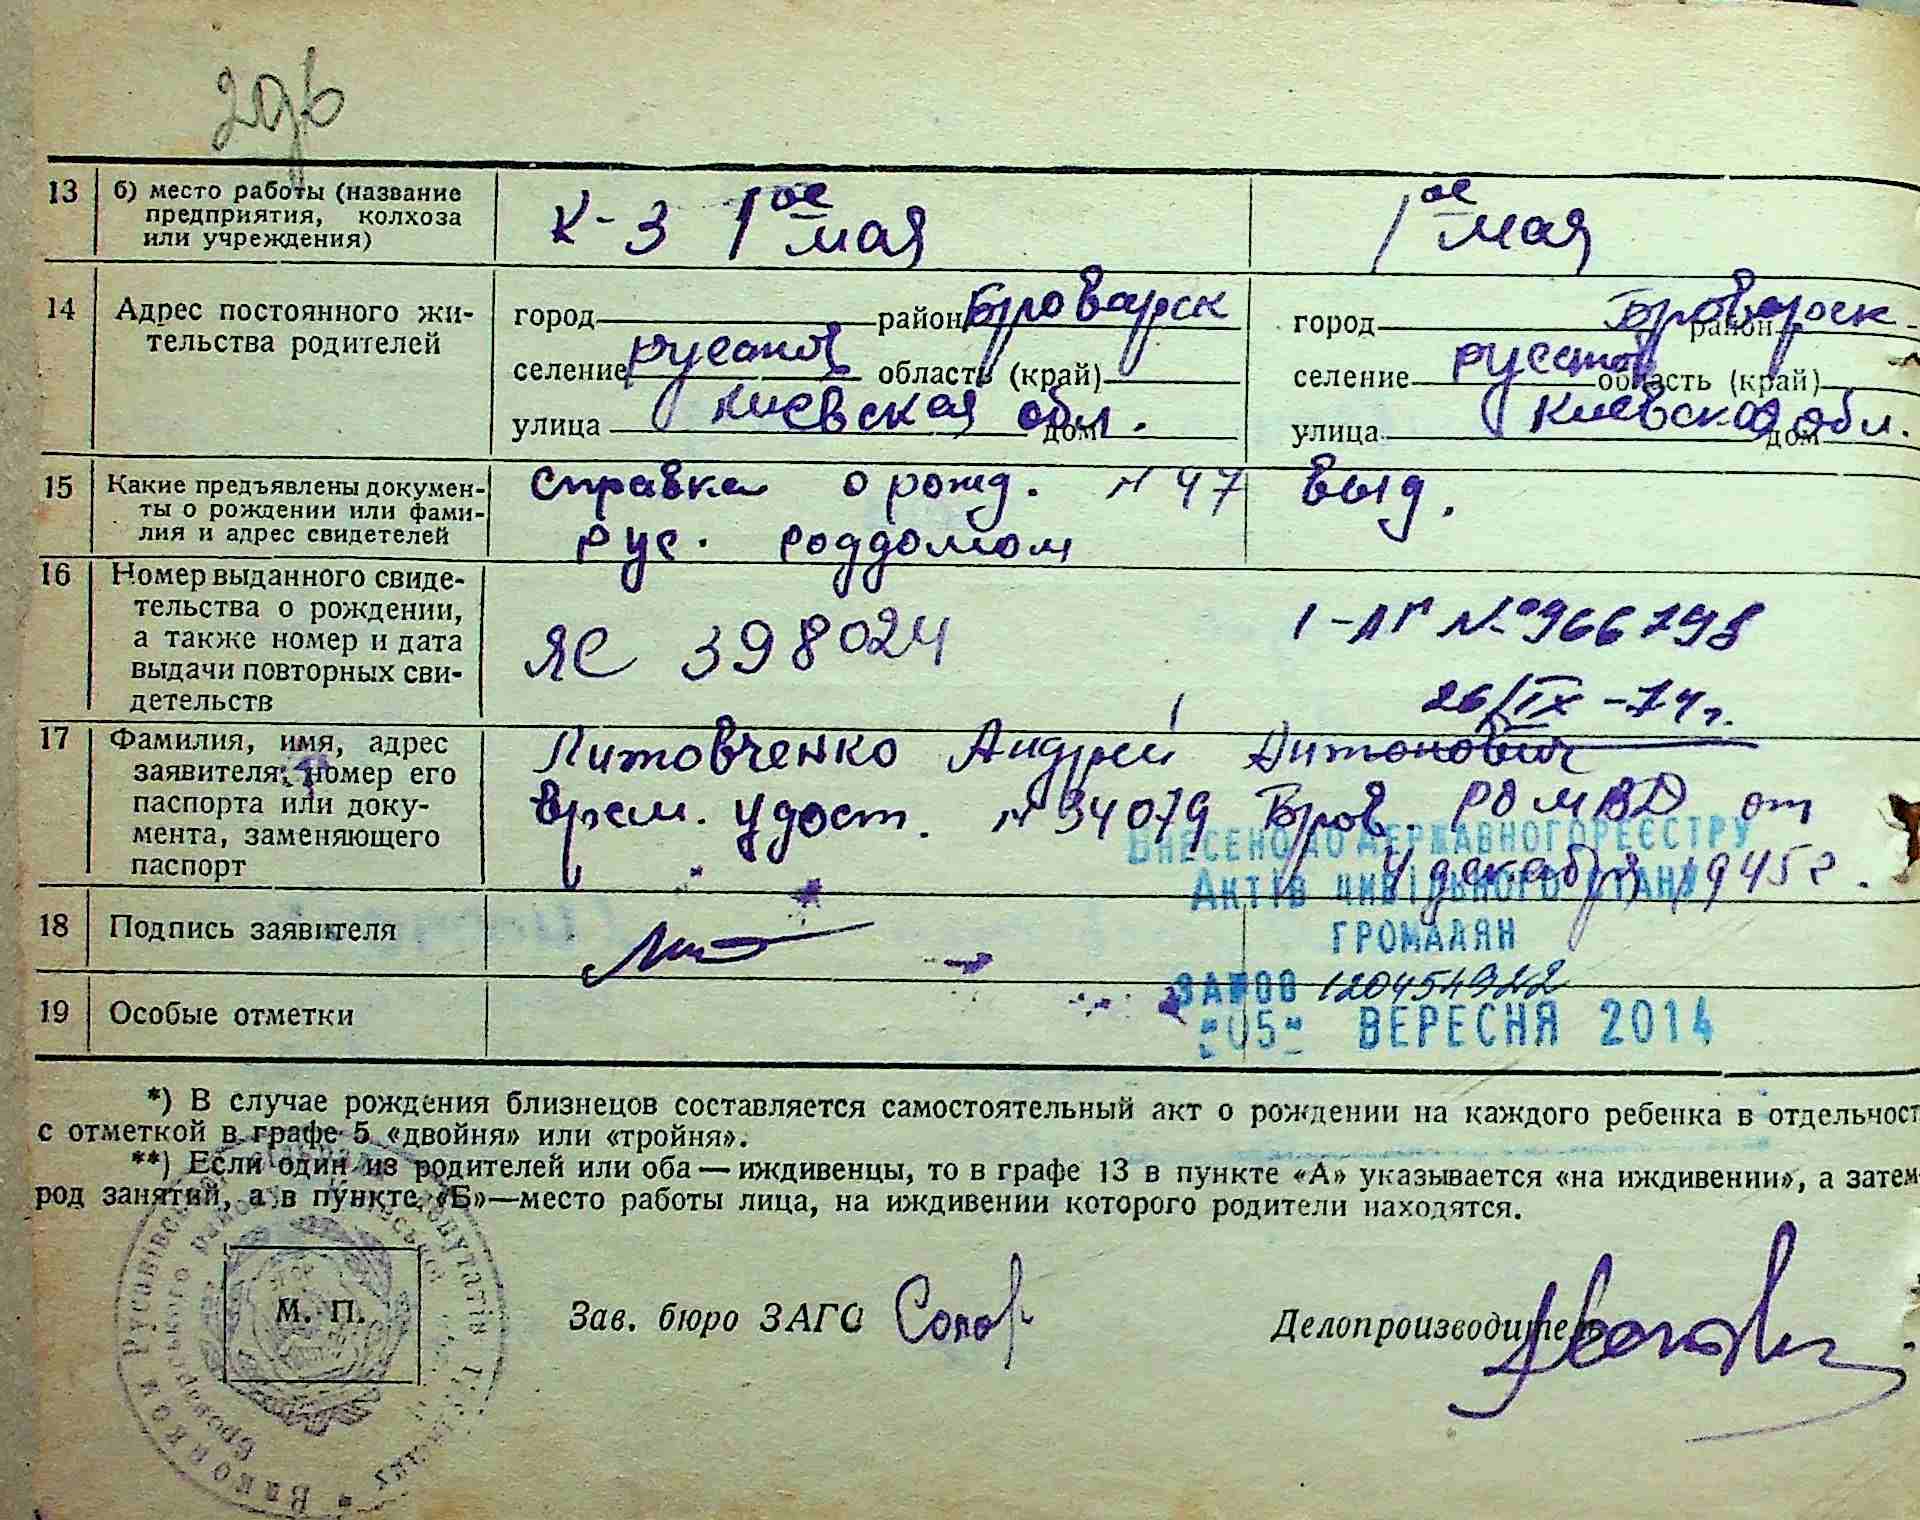 13 б) место работы (название
предприятия, колхоза
или учреждения)
К-3 1ое мая
1ое мая
14 Адрес постоянного жи-
тельства родителей
город район Броварск
селение русанов область (край)
улица киевская обл. дом
город район Броварск
селение русанов область (край)
улица киевская обл. дом
15 Какие предъявлены докумен-
ты о рождении или фами-
лия и адрес свидетелей
справка о рожд. N 47 выд.
рус. роддомом
16 Номер выданного свиде-
тельства о рождении,
а также номер и дата
выдачи повторных сви-
детельств
ЯС 398024
I-АГ № 966798
26/IX-74 г.
17 Фамилия, имя, адрес
заявителя, номер его
паспорта или доку-
мента, заменяющего
паспорт
Литовченко Андрей Антонович
Врем. удост. N 34079 Бров. РО МВД от
4 декабря 1945 г.
ВНЕСЕНО ДО ДЕРЖАВНОГО РЕЄСТРУ
АКТІВ ЦИВІЛЬНОГО СТАНУ
ГРОМАДЯН
18 Подпись заявителя
Лит
19 Особые отметки
"05" ВЕРЕСНЯ 2014
*) В случае рождения близнецов составляется самостоятельный акт о рождении на каждого ребенка в отдельност
с отметкой в графе 5 «двойня» или «тройня».
**) Если один из родителей или оба — иждивенцы, то в графе 13 в пункте «А» указывается «на иждивении», а затем
род занятий, а в пункте «Б»—место работы лица, на иждивении которого родители находятся.
М. П.
Зав. бюро ЗАГС
Делопроизводитель